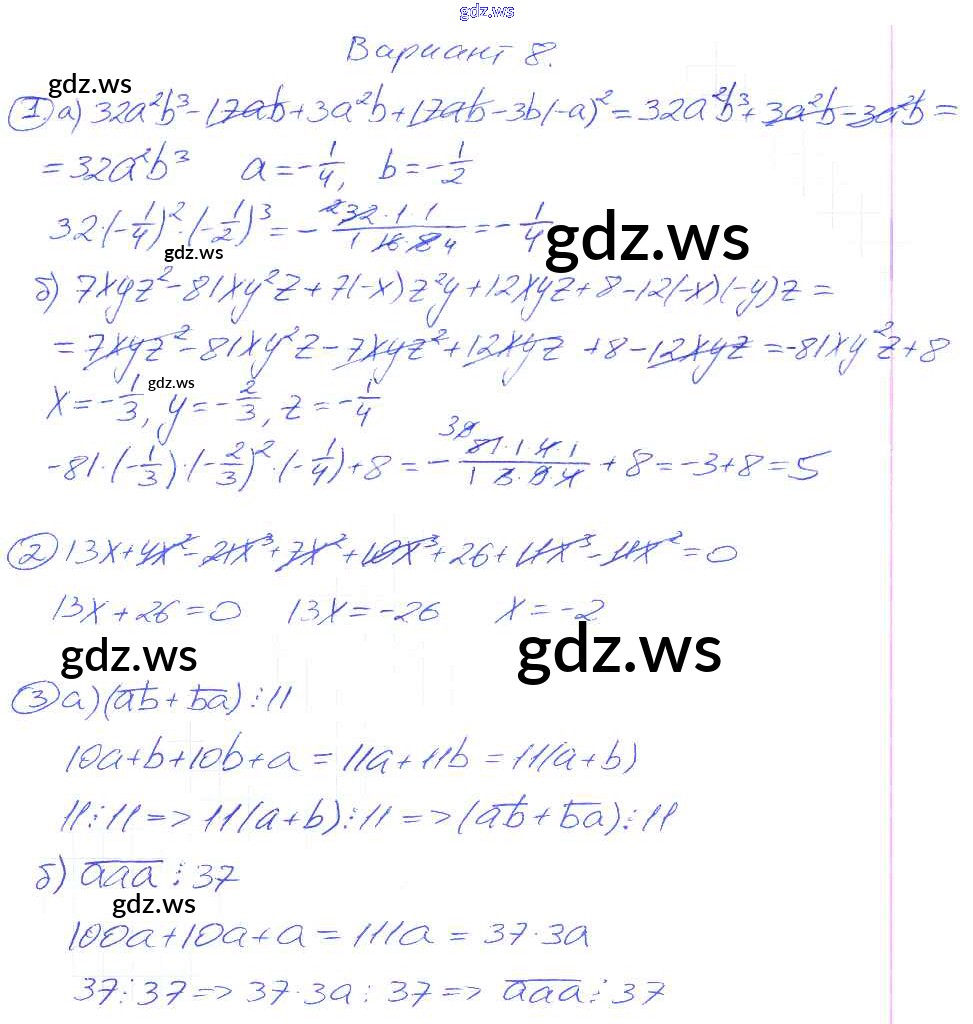 gdz.ws
Вариант 8.
gdz.ws
① а) 32a²b³ - 17ab + 3a²b + 17ab - 3b(-a)² = 32a²b³ + 3a²b - 3a²b =
= 32a²b³ a = -1/4, b = -1/2
32·(-1/4)²·(-1/2)³ = - 32·1·1 / 16·8 = -1/4
gdz.ws
gdz.ws
б) 7xyz² - 81xy²z + 7(-x)z²y + 12xyz + 8 - 12(-x)(-y)z =
= 7xyz² - 81xy²z - 7xyz² + 12xyz + 8 - 12xyz = -81xy²z + 8
gdz.ws
x = -1/3, y = -2/3, z = -1/4
-81·(-1/3)·(-2/3)²·(-1/4) + 8 = - 81·1·4·1 / 3·9·4 + 8 = -3 + 8 = 5
② 13x + 4x² - 21x³ + 7x² + 10x³ + 26 + 11x³ - 11x² = 0
13x + 26 = 0 13x = -26 x = -2
gdz.ws
gdz.ws
③ а) (ab + ba) ⋮ 11
10a + b + 10b + a = 11a + 11b = 11(a + b)
11 ⋮ 11 => 11(a + b) ⋮ 11 => (ab + ba) ⋮ 11
б) aaa ⋮ 37
gdz.ws
100a + 10a + a = 111a = 37·3a
37 ⋮ 37 => 37·3a ⋮ 37 => aaa ⋮ 37